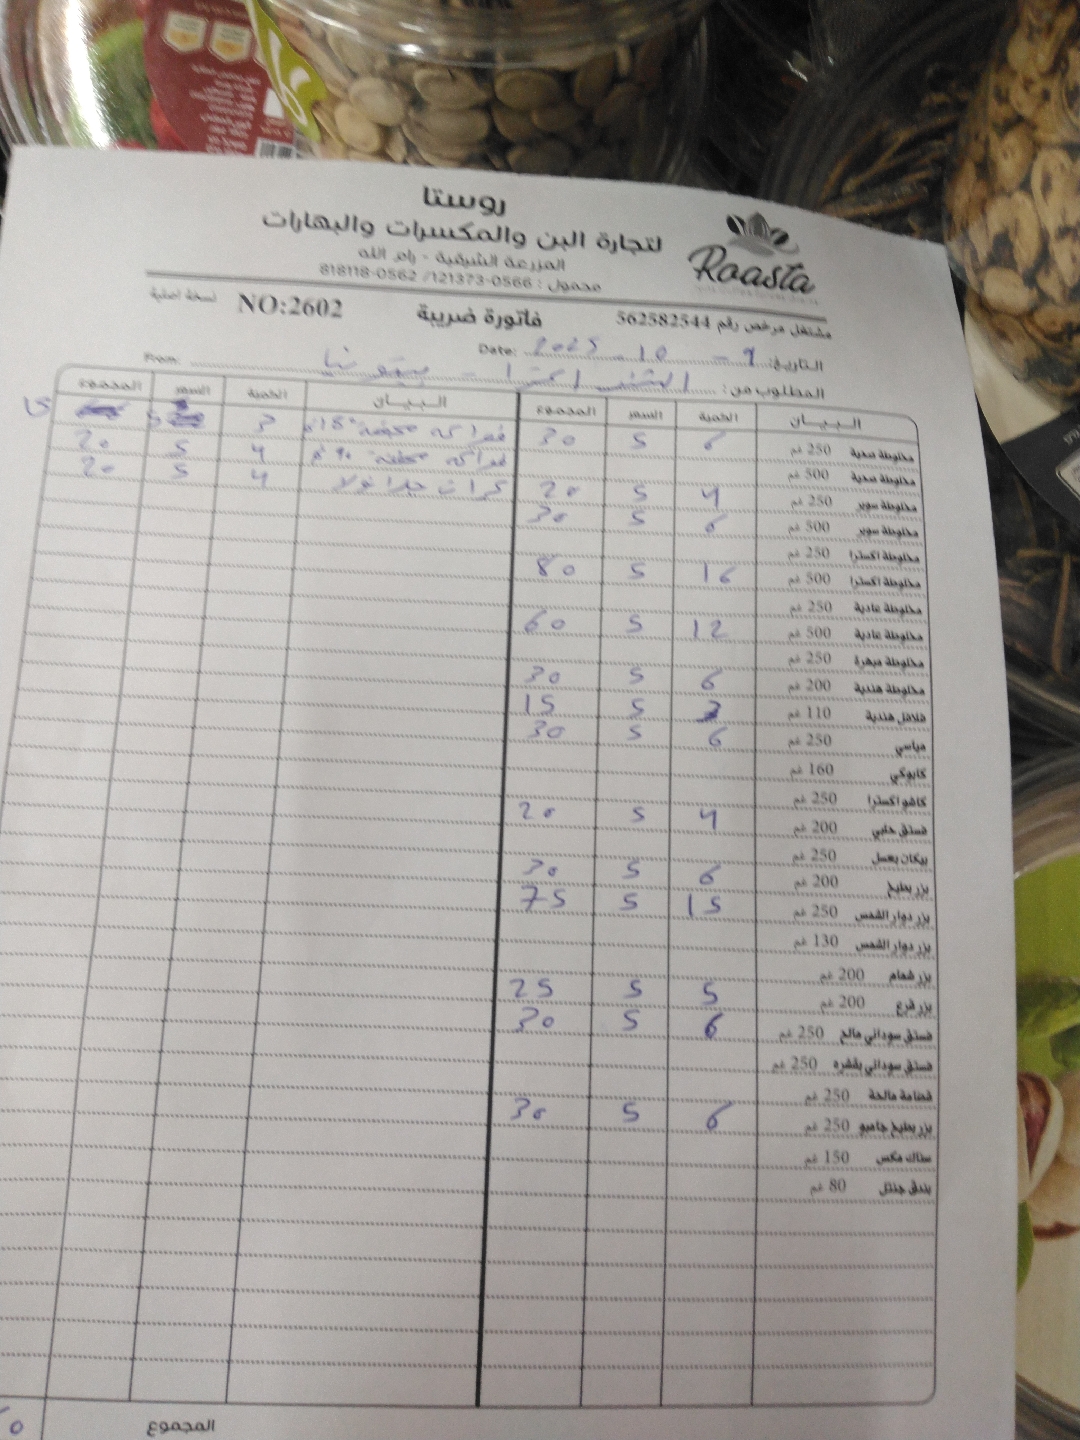 روستا
لتجارة البن والمكسرات والبهارات
المزرعة الشرقية - رام الله
محمول : 0566-121373/ 0562-818118
Roasta
مشتغل مرخص رقم 562582544 فاتورة ضريبة NO:2602 نسخة اصلية
التاريخ: 9 - 10 - 2025 Date:
المطلوب من: From:
البيان الكمية السعر المجموع البيان الكمية السعر المجموع
مخلوطة صحية 250 غم 6 5 30 3
مخلوطة صحية 500 غم 4 5 20
مخلوطة سوبر 250 غم 4 5 20 4 5 20
مخلوطة سوبر 500 غم 6 5 30
مخلوطة اكسترا 250 غم
مخلوطة اكسترا 500 غم 16 5 80
مخلوطة عادية 250 غم
مخلوطة عادية 500 غم 12 5 60
مخلوطة مبهرة 250 غم
مخلوطة هندية 200 غم 6 5 30
فلافل هندية 110 غم 3 5 15
مياسي 250 غم 6 5 30
كابوكي 160 غم
كاشو اكسترا 250 غم
فستق حلبي 200 غم 4 5 20
بيكان بعسل 250 غم
بزر بطيخ 200 غم 6 5 30
بزر دوار الشمس 250 غم 15 5 75
بزر دوار الشمس 130 غم
بزر شمام 200 غم
بزر قرع 200 غم 5 5 25
فستق سوداني مالح 250 غم 6 5 30
فستق سوداني بقشره 250 غم
قضامة مالحة 250 غم
بزر بطيخ جامبو 250 غم 6 5 30
سناك مكس 150 غم
بندق جنتل 80 غم
المجموع